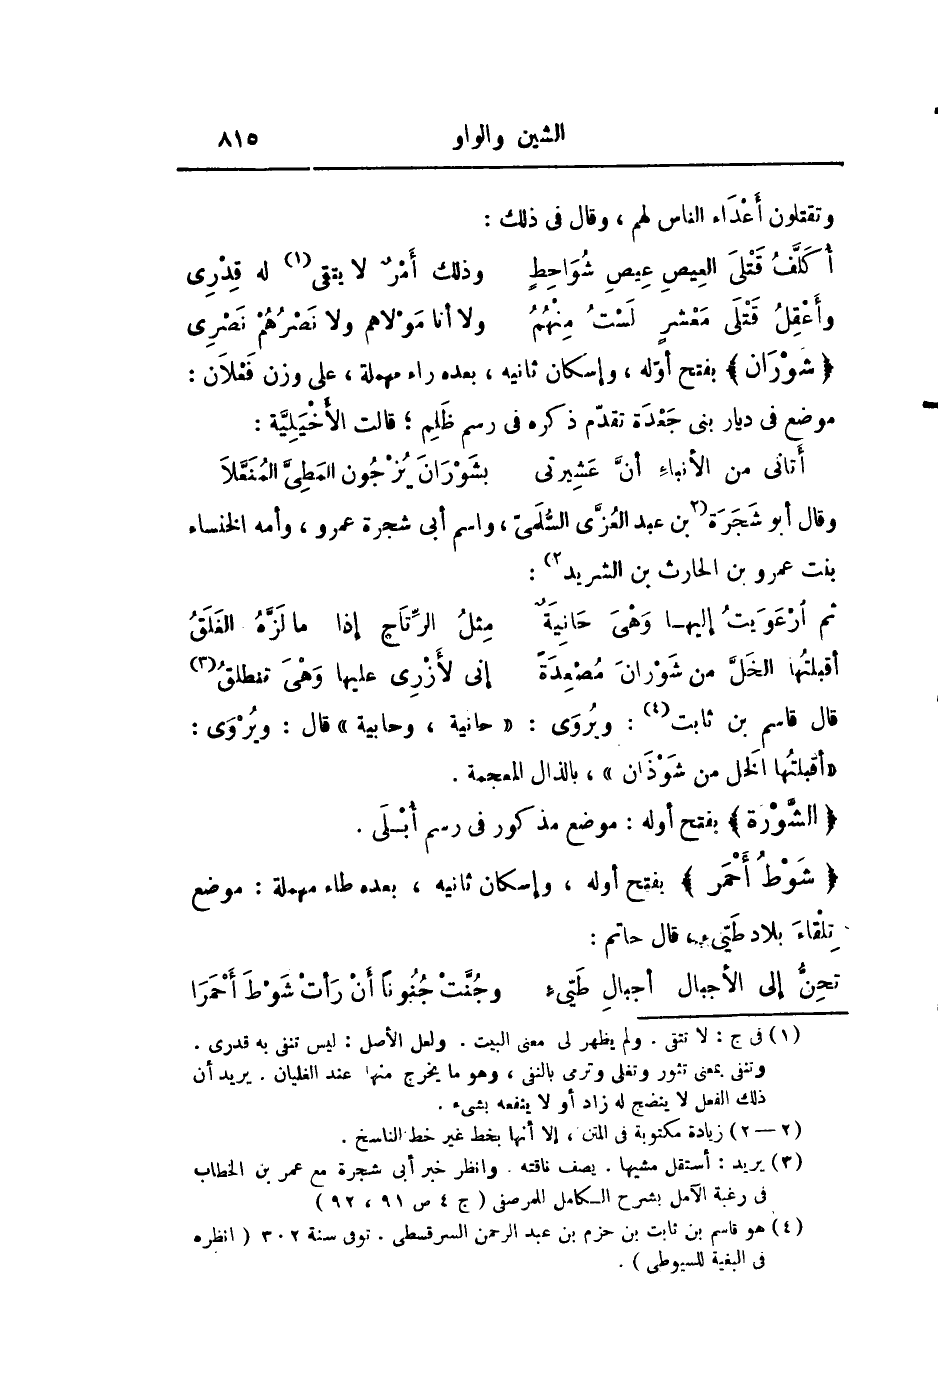 الشين والواو ٨١٥
وتقتلون أَعْدَاء الناس لهم ، وقال فى ذلك :
أُكَلَّفُ قَتْلَى العِيصِ عِيصِ شُوَاحِطٍ وذلك أَمْرٌ لا يتقى(١) له قِدْرِى
وأَعْقِلُ قَتْلَى مَعْشرٍ لَسْتُ مِنْهُمُ ولا أنا مَوْلاهم ولا نَصْرُهُمْ نَصْرِى
﴿ شَوْرَان ﴾ بفتح أوّله ، وإسكان ثانيه ، بعده راء مهملة ، على وزن فَعْلاَن :
موضع فى ديار بنى جَعْدَة تقدّم ذكره فى رسم ظَلِم ؛ قالت الأَخْيَلِيَّة :
أتانى من الأنباءِ أنَّ عَشِيرتى بشَوْرَانَ يُزْجُون المَطِىَّ المُنَعَّلاَ
وقال أبو شَجَرَة(٢ بن عبد العُزَّى السُّلَمىّ ، واسم أبى شجرة عمرو ، وأمه الخنساء
بنت عمرو بن الحارث بن الشريد٢) :
ثم ارْعَوَيتُ إليهـا وَهْىَ حَانِيَةٌ مِثلُ الرِّتَاجِ إذا ما لَزَّهُ الغَلَقُ
أقبلتُها الخَلَّ من شَوْرانَ مُصْعِدَةً إنى لأَزْرِى عليها وَهْىَ تنطلقُ(٣)
قال قاسم بن ثابت(٤) : ويُروَى : « حانية ، وحابية » قال : ويُرْوَى :
«أقبلتُها الخل من شَوْذَان » ، بالذال المعجمة .
﴿ الشَّوْرَة ﴾ بفتح أوله : موضع مذكور فى رسم أُبْـلَى .
﴿ شَوْطُ أَحْمَر ﴾ بفتح أوله ، وإسكان ثانيه ، بعده طاء مهملة : موضع
تِلْقَاءَ بلاد طَيّىء، قال حاتم :
تحِنُّ إلى الأجبال أجبالِ طَيّىء وجُنَّتْ جُنُوناً أَنْ رَأتْ شَوْطَ أَحْمَرَا
(١) فى ج : لا تتقى . ولم يظهر لى معنى البيت . ولعل الأصل : ليس تنفى به قدرى .
وتنفى بمعنى تثور وتغلى وترمى بالنفى ، وهو ما يخرج منها عند الغليان . يريد أن
ذلك الفعل لا ينضج له زاد أو لا ينفعه بشىء .
(٢ — ٢) زيادة مكتوبة فى المتن ، إلا أنها بخط غير خط الناسخ .
(٣) يريد : أستقل مشيها . يصف ناقته . وانظر خبر أبى شجرة مع عمر بن الخطاب
فى رغبة الآمل بشرح الـكامل للمرصفى ( ج ٤ ص ٩١ ، ٩٢ )
(٤) هو قاسم بن ثابت بن حزم بن عبد الرحمن السرقسطى . توفى سنة ٣٠٢ ( انظره
فى البغية للسيوطى ) .